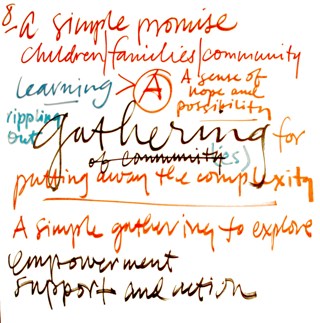 8 a simple promise
children/families/community
learning > A A sense of
hope and
possibility
rippling
out
gathering for
of community(ies)
putting away the complexity
A simple gathering to explore
empowerment
support and action